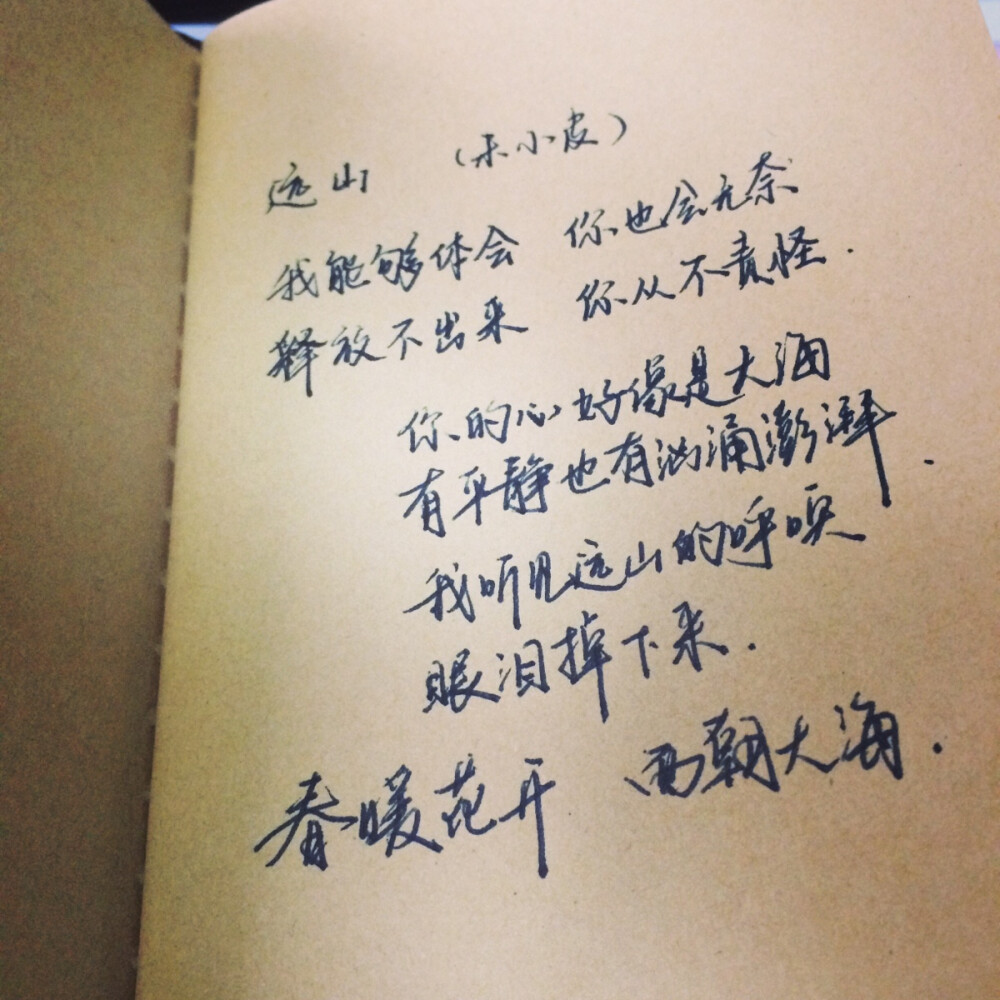 远山 （禾小皮）
我能够体会 你也会无奈
释放不出来 你从不责怪.
你的心好像是大海
有平静也有汹涌澎湃.
我听见远山的呼唤
眼泪掉下来.
春暖花开 面朝大海.